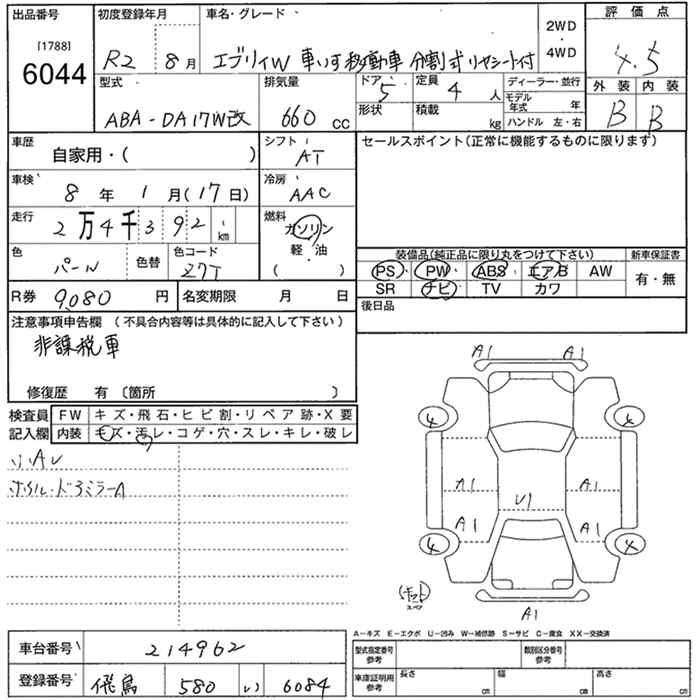 出品番号
[1788]
6044
初度登録年月
R2 8月
車名・グレード
エブリィW 車いす移動車 分割式リヤシート付
2WD
・
4WD
評価点
4.5
外装 内装
B B
型式
ABA-DA17W改
排気量
660 cc
ドア 5
形状
定員 4 人
積載 kg
ディーラー・並行
モデル年式 年
ハンドル 左・右
車歴
自家用・( )
シフト
AT
セールスポイント(正常に機能するものに限ります)
車検
8年 1月(17日)
冷房
AAC
走行
2万4千392 km
燃料
ガソリン
軽・油
・
( )
色
パール
色替
色コード
Z7T
装備品(純正品に限り丸をつけて下さい)
新車保証書
PS PW ABS エアB AW
SR ナビ TV カワ
有・無
R券 9,080円
名変期限 月 日
後日品
注意事項申告欄(不具合内容等は具体的に記入して下さい)
非課税車
修復歴 有〔箇所 〕
検査員
記入欄
FW キズ・飛石・ヒビ割・リペア跡・X要
内装 キズ・汚レ・コゲ・穴・スレ・キレ・破レ
小AU
ホイル・ドアミラーA
A1 A1
4 4
A1 U1 A1
A1 A1
4 4
A1
スペア
A-キズ E-エクボ U-凹み W-補修跡 S-サビ C-腐食 XX-交換済
車台番号 214962
型式指定番号
参考
類別区分番号
参考
登録番号 飛鳥 580 い 6084
車庫証明用
参考
長さ cm
幅 cm
高さ cm